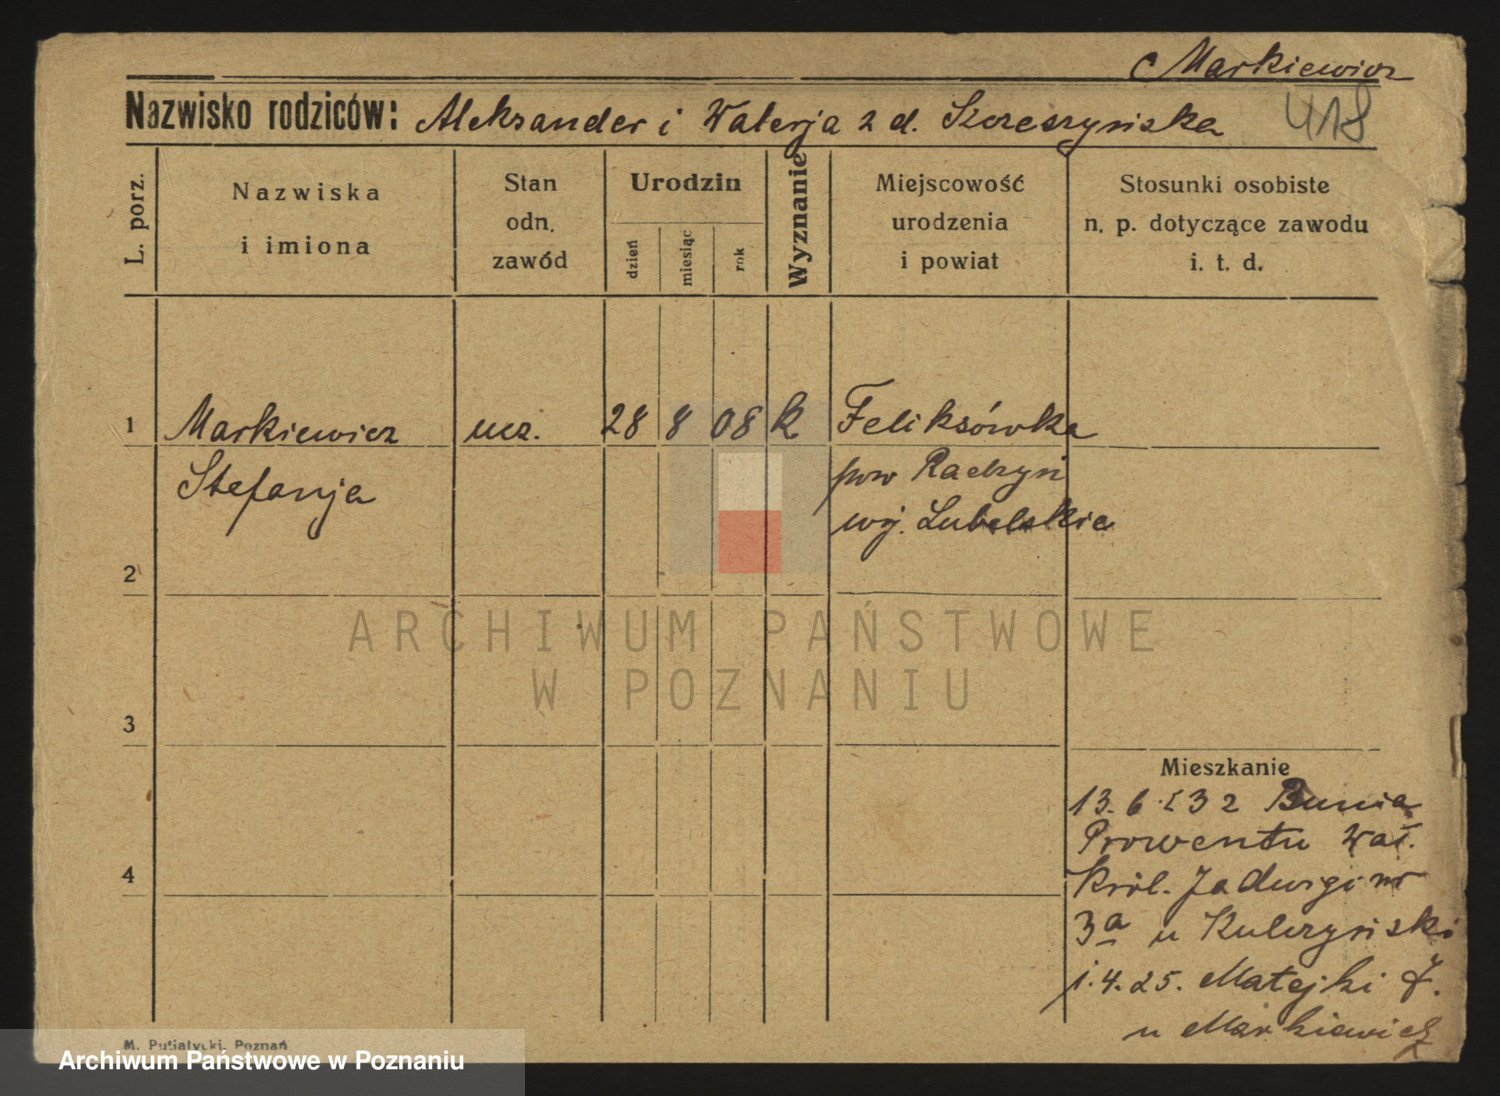 Markiewicz
Nazwisko rodziców: Aleksander i Walerja z d. Szczeszyńska
418
L. porz.
Nazwiska i imiona
Stan odn. zawód
Urodzin
dzień
miesiąc
rok
Wyznanie
Miejscowość urodzenia i powiat
Stosunki osobiste n. p. dotyczące zawodu i. t. d.
1 Markiewicz ucz. 28 8 08 k Feliksówka
Stefanja pow Radzyń
woj. Lubelskie
2
3
4
Mieszkanie
13.6.32
Prowentu Wał.
Król. Jadwigi nr
3a u Kulczyński
1.4.25. Matejki 7.
u Markiewicz
ARCHIWUM PAŃSTWOWE
W POZNANIU
M. Putiatycki, Poznań
Archiwum Państwowe w Poznaniu